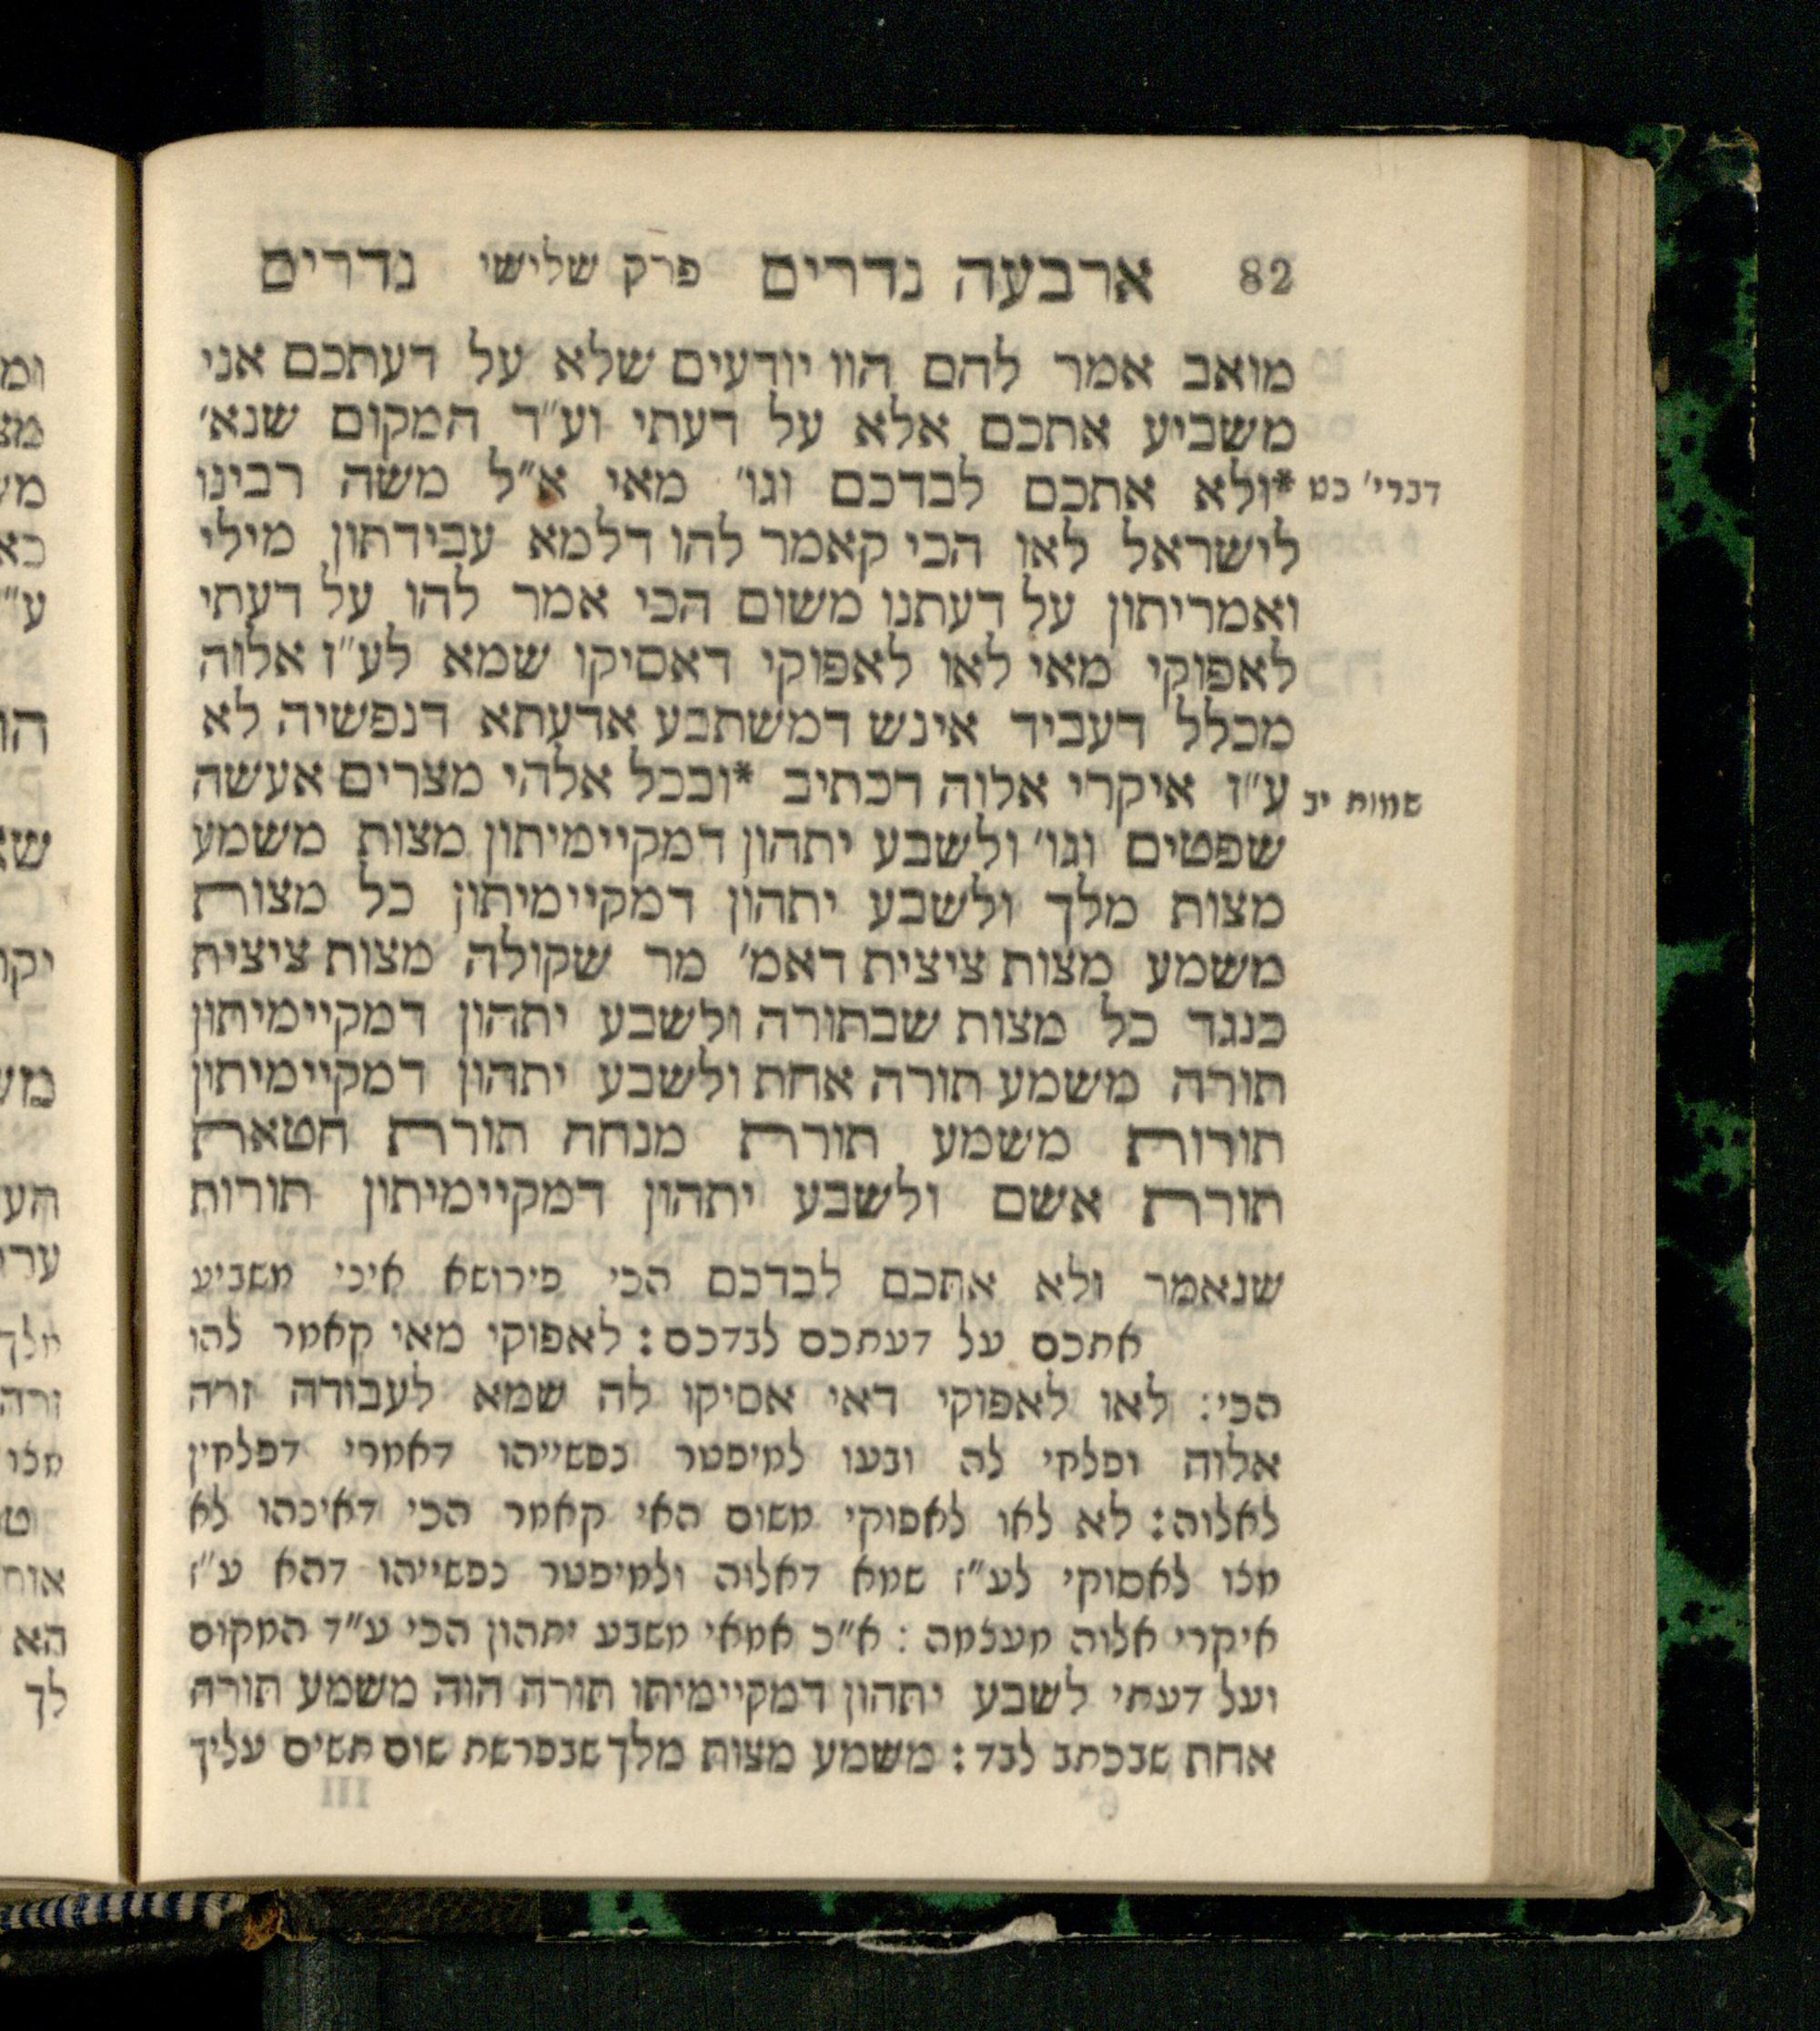 82 ארבעה נדרים פרק שלישי נדרים
מואב אמר להם הוו יודעים שלא על דעתכם אני
משביע אתכם אלא על דעתי וע״ד המקום שנא׳
דברי׳ כט *ולא אתכם לבדכם וגו׳ מאי א״ל משה רבינו
לישראל לאו הכי קאמר להו דלמא עבידתון מילי
ואמריתון על דעתנו משום הכי אמר להו על דעתי
לאפוקי מאי לאו לאפוקי דאסיקו שמא לע״ז אלוה
מכלל דעביד אינש דמשתבע אדעתא דנפשיה לא
שמות יב ע״ז איקרי אלוה דכתיב *ובכל אלהי מצרים אעשה
שפטים וגו׳ ולשבע יתהון דמקיימיתון מצות משמע
מצות מלך ולשבע יתהון דמקיימיתון כל מצות
משמע מצות ציצית דאמ׳ מר שקולה מצות ציצית
כנגד כל מצות שבתורה ולשבע יתהון דמקיימיתון
תורה משמע תורה אחת ולשבע יתהון דמקיימיתון
תורות משמע תורת מנחה תורת חטאת
תורת אשם ולשבע יתהון דמקיימיתון תורות
שנאמר ולא אתכם לבדכם הכי פירושא איני משביע
אתכם על דעתכם לבדכם: לאפוקי מאי קאמר להו
הכי: לאו לאפוקי דאי אסיקו לה שמא לעבודה זרה
אלוה ופלחי לה ובעו למיפטר נפשייהו דאמרי דפלחין
לאלוה: לא לאו לאפוקי משום האי קאמר הכי דאינהו לא
מצו לאסוקי לע״ז שמא דאלוה ולמיפטר נפשייהו דהא ע״ז
איקרי אלוה מעצמה: א״כ אמאי משבע יתהון הכי ע״ד המקום
ועל דעתי לשבע יתהון דמקיימיתו תורה הוה משמע תורה
אחת שבכתב לבד: משמע מצות מלך שבפרשת שום תשים עליך